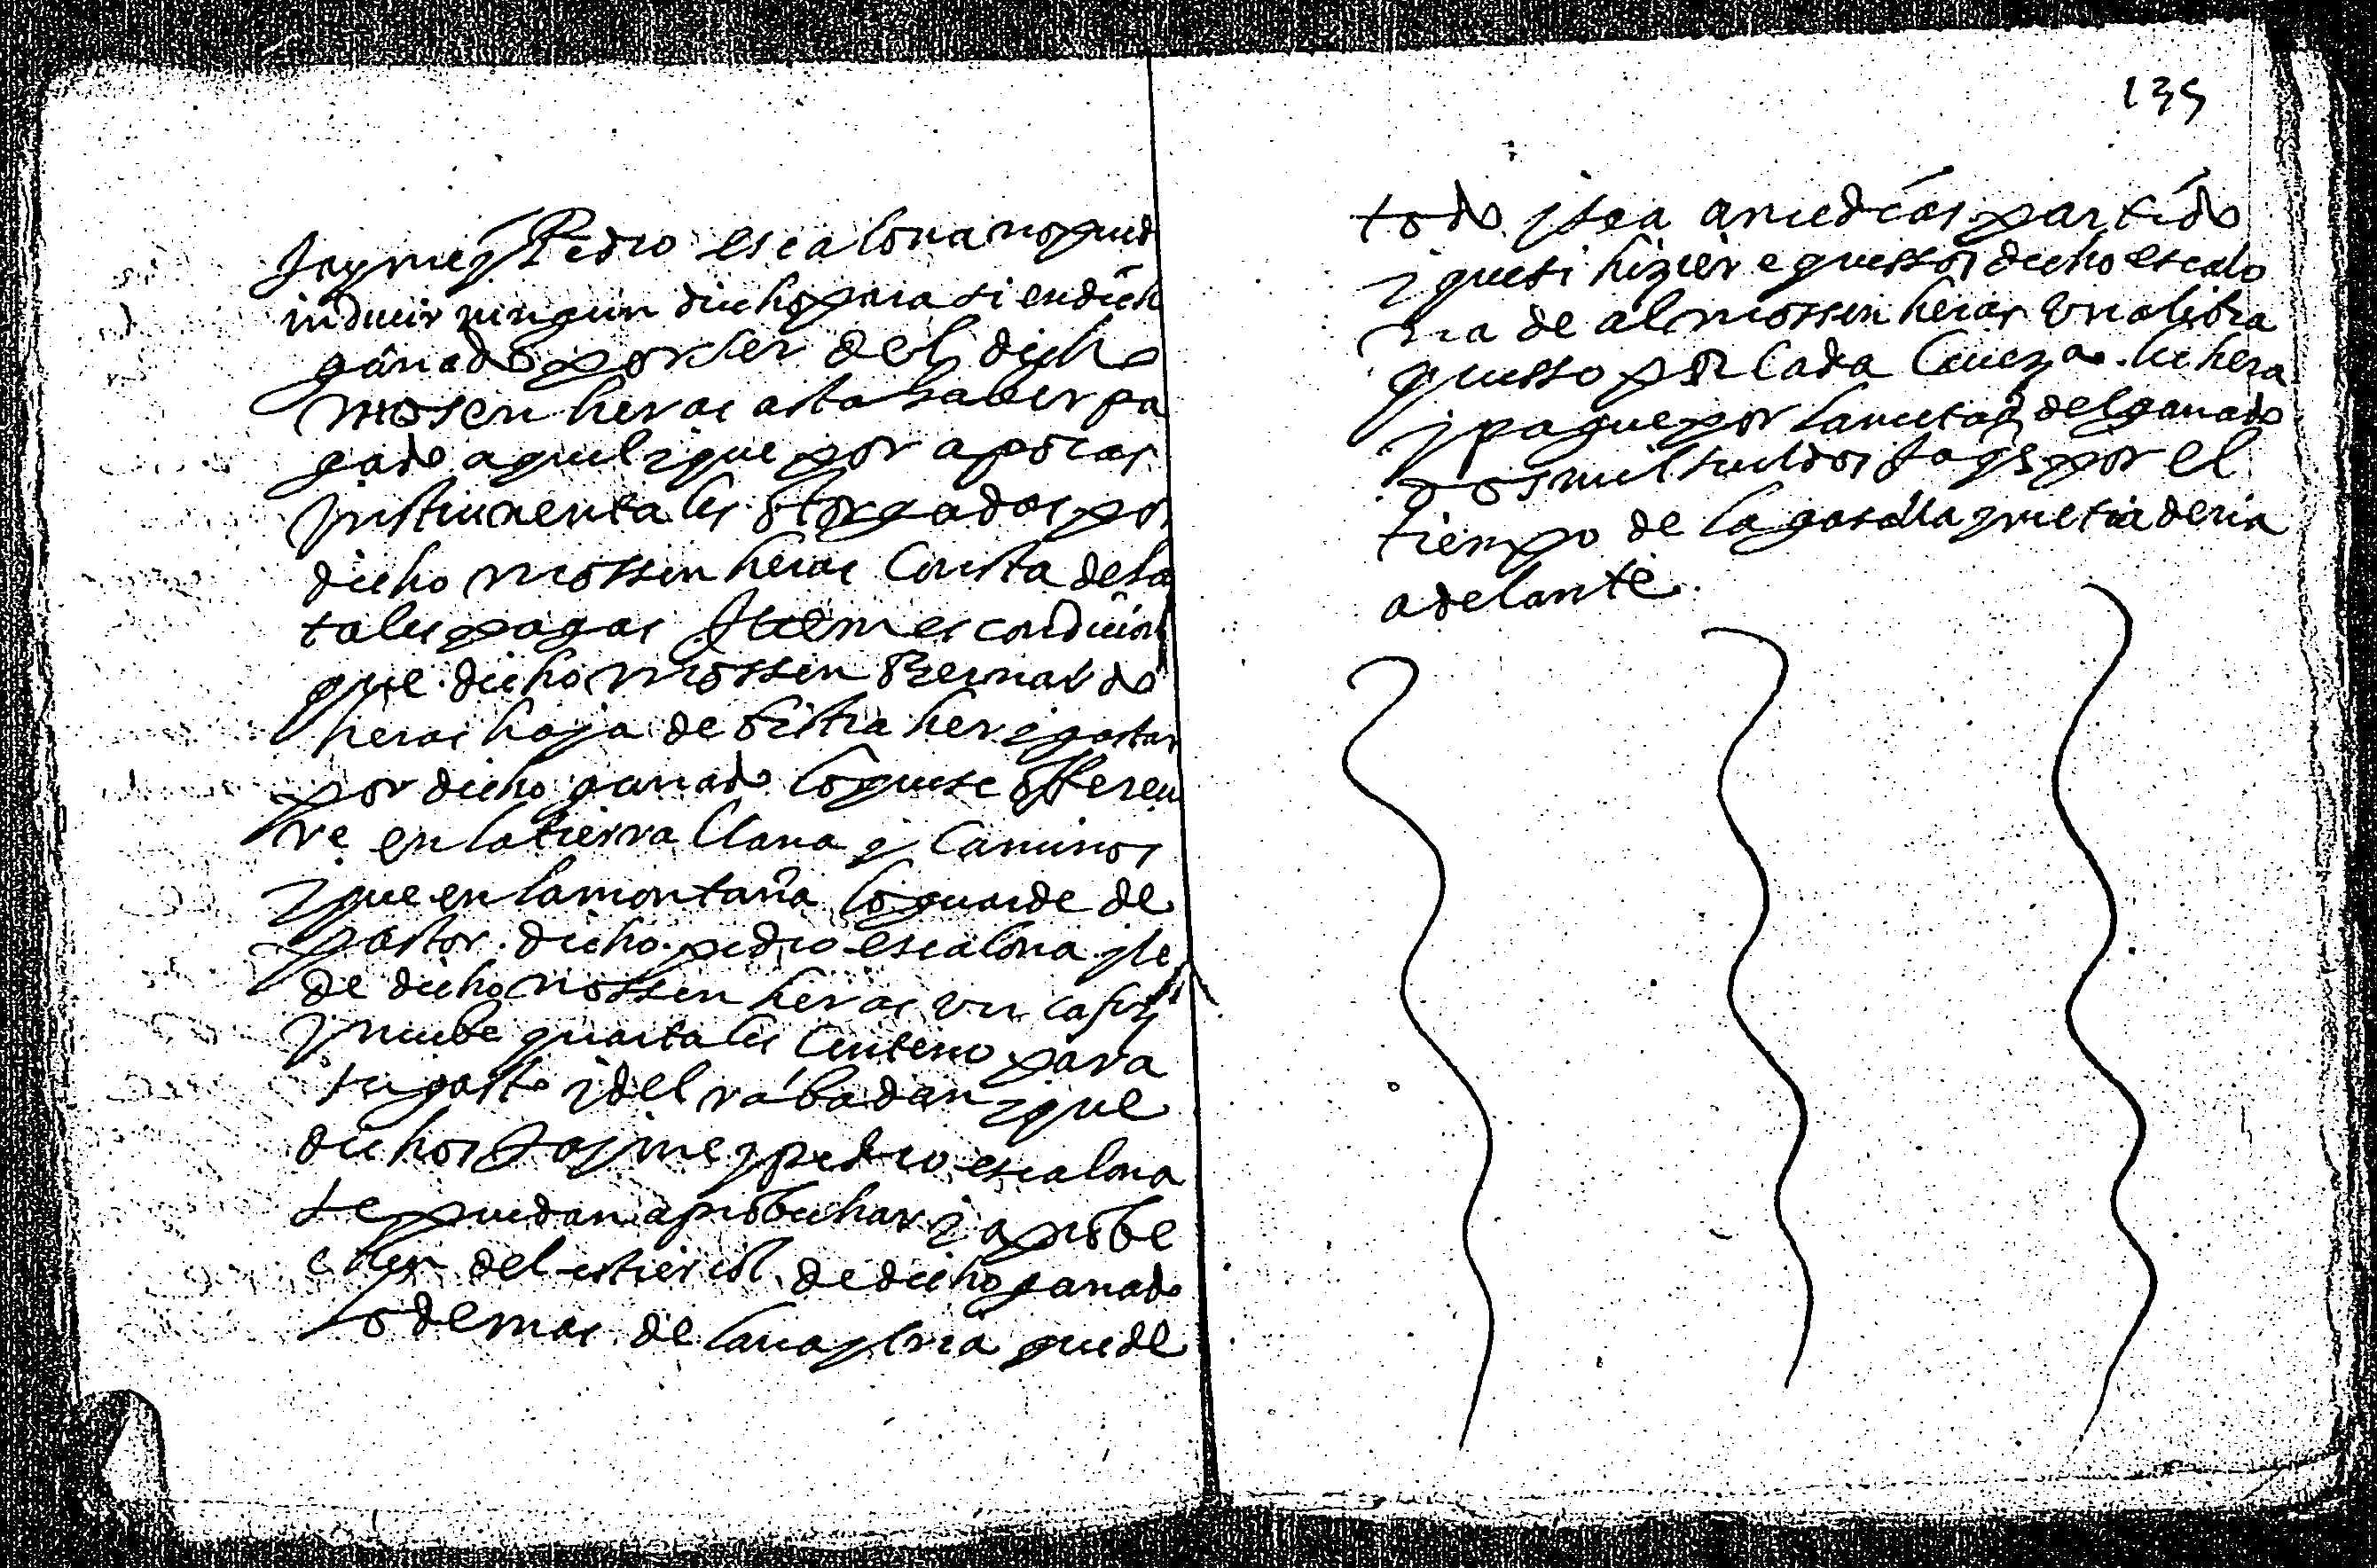 Jayme y Pedro escalona no pued
inducir ningun dicho para si en dich
ganado por ser del dicho
mosen heras asta haber pa
gado aquel y que por apocas
instrumentales otorgadas por
dicho mossen heras Consta de la
tales pagas Item es condicion
que dicho mossen Bernardo
heras haja de vistraher y gastar
por dicho ganado lo que se offerecie
re en la tierra llana y Caminos
y que en la montaña lo guarde de
pastor dicho pedro escalona y le
de dicho mossen heras un cafiz
y nuebe quartales Centeno para
su gasto y del rabadan y que
dichos Jayme y pedro escalona
se puedan aprobechar y aprobe
chen del estiercol de dicho ganado
lo demas de lana y cria quede
135
todo y sea a medias partido
y que si hiziere quessos dicho escalo
na de al mossen heras una libra
quesso por Cada Caueza lechera
y pague por la metad del ganado
dos mil sueldos Jaqs por el
tiempo de la gasalla y metiaderia
adelante.